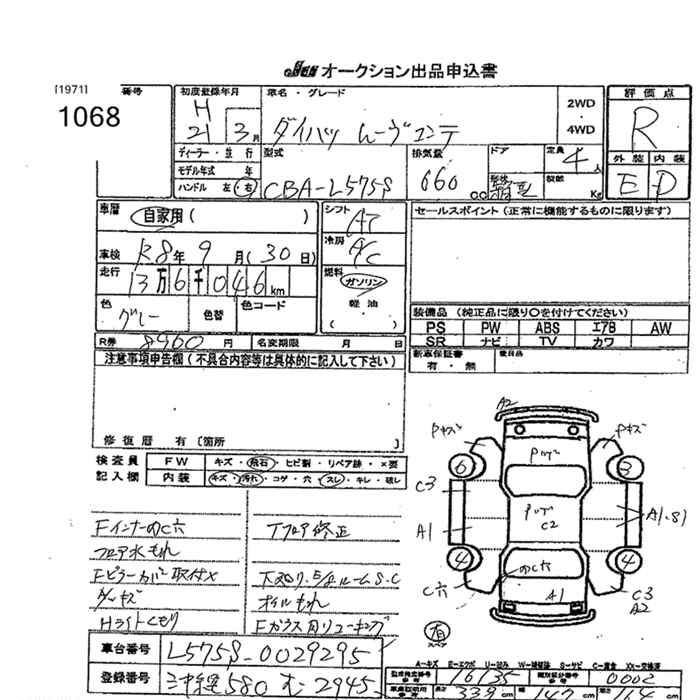 JU オークション出品申込書
[1971] 番号
1068
初度登録年月
H
21 3 月
車名・グレード
ダイハツ ムーヴコンテ
2WD
・
4WD
評価点
R
外装 内装
E D
ディーラー・並行
モデル年式 年
ハンドル 左・右
型式
CBA-L575S
排気量
660 cc
ドア
定員
4人
積載
Kg
車歴
自家用( )
車検 R8年 9月(30日)
走行
13万6千046km
色
グレー
色替
色コード
シフト
AT
冷房
A/C
燃料
ガソリン
軽油
( )
セールスポイント(正常に機能するものに限ります)
装備品(純正品に限り○を付けてください)
PS PW ABS エアB AW
SR ナビ TV カワ
新車保証書
有・無
後日品
R券 8960 円
名変期限 月 日
注意事項申告欄(不具合内容等は具体的に記入して下さい)
修復歴 有〔箇所 〕
検査員
記入欄
FW キズ・飛石・ヒビ割・リペア跡・×要
内装 キズ・汚れ・コゲ・穴・スレ・キレ・破レ
Fインナーのび穴
フロア水もれ
Fピラーカバー取付×
ダッシュキズ
Hライトくもり
Tフロア修正
下廻り、E/gルームS.C
オイルもれ
Fガラス角リューキング
A2
Pキズ
Pキズ
Pツブ
6
3
C3
A1
Pツブ
C2
A1.S1
4
4
C穴
のび穴
A1
C3
A2
有
スペア
A-キズ E-エクボ U-凹み W-補修跡 S-サビ C-腐食 XX-交換済
車台番号 L575S-0029295
登録番号 580 む 2945
型式指定番号 16135
類別区分番号 0002
339 147 164